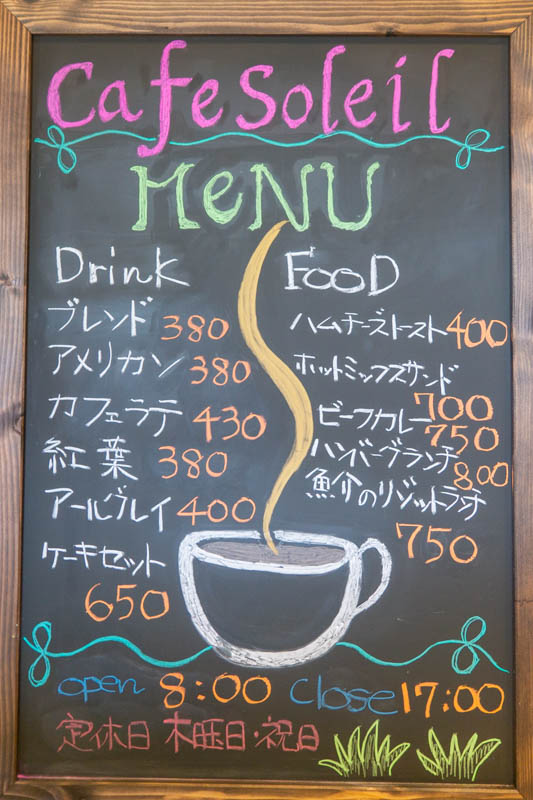 Cafe Soleil
MENU
Drink
ブレンド 380
アメリカン 380
カフェラテ 430
紅葉 380
アールグレイ 400
ケーキセット
650
FOOD
ハムチーズトースト 400
ホットミックスサンド
700
ビーフカレー 750
ハンバーグランチ 800
魚介のリゾットランチ
750
open 8:00 close 17:00
定休日 木曜日・祝日